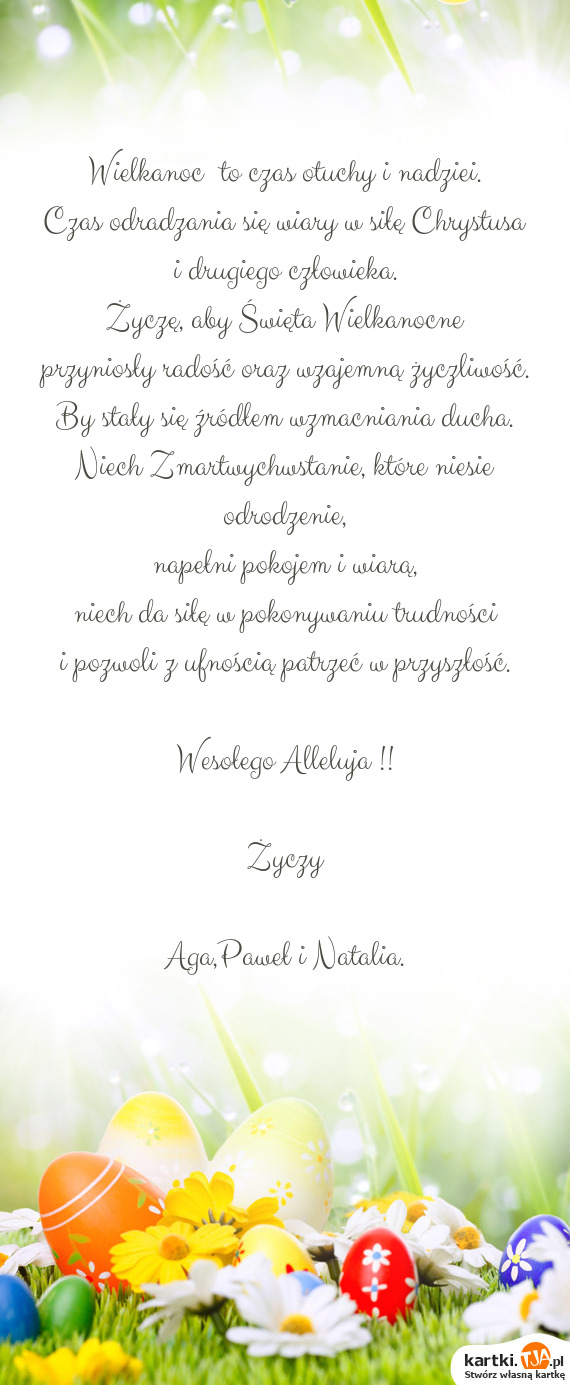 Wielkanoc to czas otuchy i nadziei.
Czas odradzania się wiary w siłę Chrystusa
i drugiego człowieka.
Życzę, aby Święta Wielkanocne
przyniosły radość oraz wzajemną życzliwość.
By stały się źródłem wzmacniania ducha.
Niech Zmartwychwstanie, które niesie
odrodzenie,
napełni pokojem i wiarą,
niech da siłę w pokonywaniu trudności
i pozwoli z ufnością patrzeć w przyszłość.
Wesołego Alleluja !!
Życzy
Aga,Paweł i Natalia.
kartki.TJA.pl
Stwórz własną kartkę